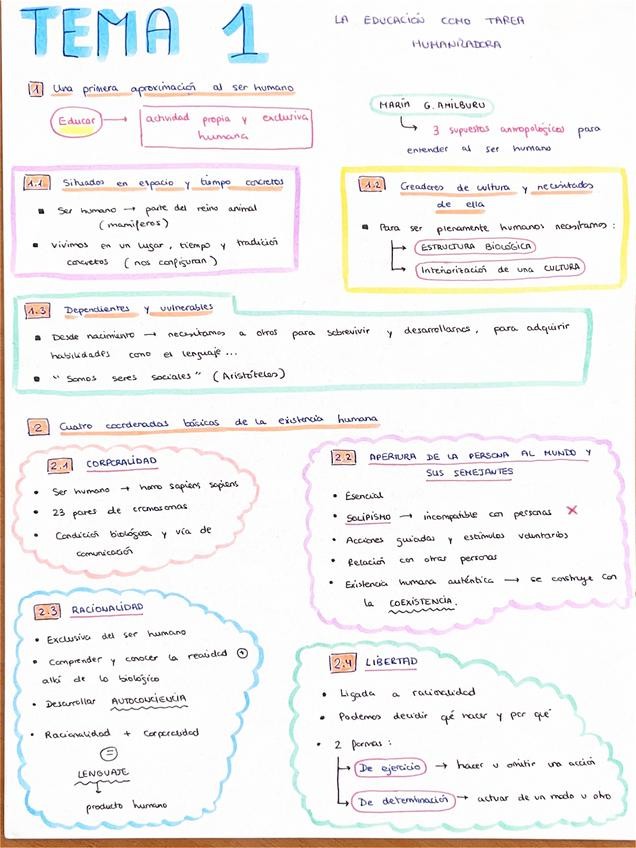 TEMA 1
LA EDUCACIÓN COMO TAREA
HUMANIZADORA
1 Una primera aproximación al ser humano
Educar → actividad propia y exclusiva
humana
MARÍA G. AMILBURU
↳ 3 supuestos antropológicos para
entender al ser humano
1.1 Situados en espacio y tiempo concretos
▪ Ser humano → parte del reino animal
(mamíferos)
▪ Vivimos en un lugar, tiempo y tradición
concretos (nos configuran)
1.2 Creadores de cultura y necesitados
de ella
▪ Para ser plenamente humanos necesitamos:
→ ESTRUCTURA BIOLÓGICA
→ Interiorización de una CULTURA
1.3 Dependientes y vulnerables
▪ Desde nacimiento → necesitamos a otros para sobrevivir y desarrollarnos, para adquirir
habilidades como el lenguaje...
▪ "Somos seres sociales" (Aristóteles)
2 Cuatro coordenadas básicas de la existencia humana
2.1 CORPORALIDAD
• Ser humano → homo sapiens sapiens
• 23 pares de cromosomas
• Condición biológica y vía de
comunicación
2.2 APERTURA DE LA PERSONA AL MUNDO Y
SUS SEMEJANTES
• Esencial
• SOLIPSISMO → incompatible con personas ✗
• Acciones guiadas y estímulos voluntarios
• Relación con otras personas
• Existencia humana auténtica → se construye con
la COEXISTENCIA.
2.3 RACIONALIDAD
• Exclusiva del ser humano
• Comprender y conocer la realidad ⊕
allá de lo biológico
• Desarrollar AUTOCONCIENCIA
• Racionalidad + Corporalidad
=
LENGUAJE
↓
producto humano
2.4 LIBERTAD
• Ligada a racionalidad
• Podemos decidir qué hacer y por qué
• 2 formas:
→ De ejercicio → hacer u omitir una acción
→ De determinación → actuar de un modo u otro